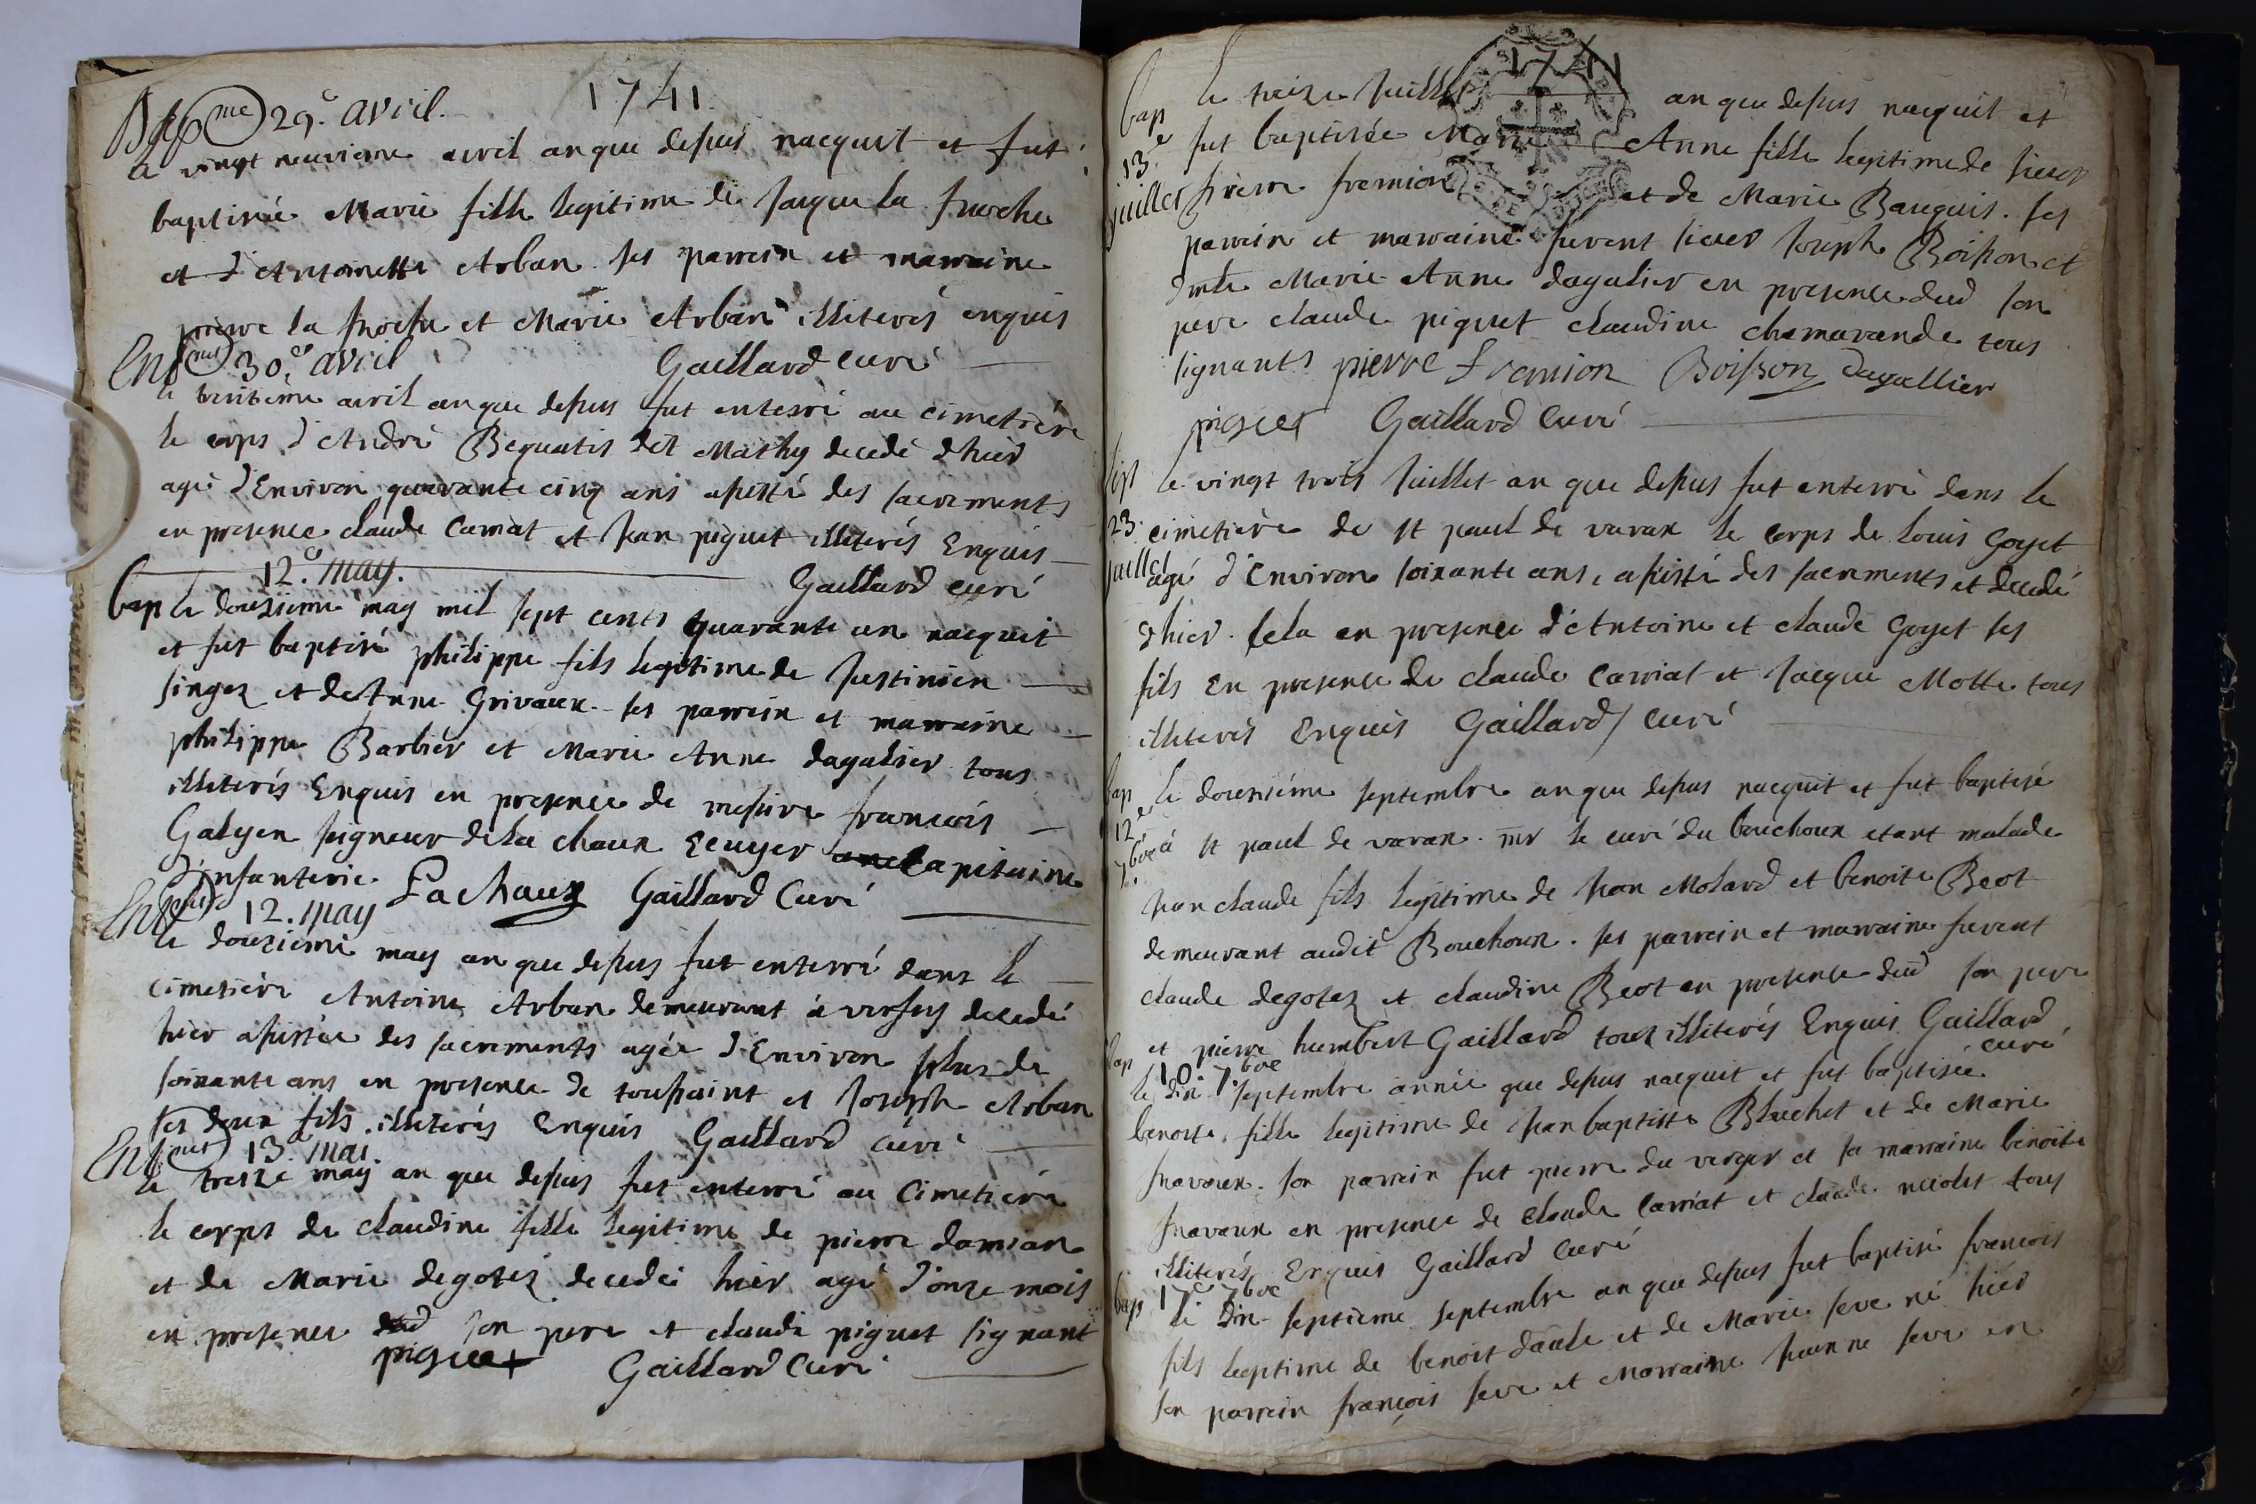 1741
Bapme 29e. avril.
le vingt neuvieme avril an que dessus nacquit et fut
baptisée Marie fille legitime de Jaque la
et d'Antoinette Arban. ses parrein et marraine
pierre la et Marie Arban illiterés enquis
Gaillard curé
Entmet 30e. avril
le trentieme avril an que dessus fut enterré au cimetière
le corps d'André Bequatis dit Mathy decedé d'hier
agé d'Environ quarante cinq ans assisté des sacrements
en presence claude Carriat et Jean piguet illiterés Enquis
Gaillard curé
12e. may.
bap le douzieme may mil sept cents quarante un nacquit
et fut baptisé philippe fils legitime de Justinien
singez et de Anne Grivaux. ses parrein et marraine
philippe Barbier et Marie Anne dagalier tous
illiterés Enquis en presence de messire francois
Galyen seigneur de la chaux Ecuyer Capitaine
d'infanterie. La chaux Gaillard Curé
Entmet 12. may
le douzieme may an que dessus fut enterré dans le
cimetière Antoine Arban demeurant à versey decedé
hier assistée des sacrements agée d'Environ plus de
soixante ans en presence de toussaint et Joseph Arban
ses deux fils. illiterés Enquis Gaillard curé
Entmet 13. mai.
le treize may an que dessus fut enterré au Cimetière
le corps de claudine fille legitime de pierre damian
et de Marie degotez decedée hier agé d'onze mois
en presence dud son pere et claude piguet signant
piguet Gaillard Curé
1741
bap
13e
juillet
le treize Juillet an que dessus nacquit et
fut baptisée Marie Anne fille legitime de sieur
pierre fremion et de Marie Bauguis. ses
parrein et marraine furent sieur Joseph Boisson et
dmlle Marie Anne dagalier en presence dud son
pere claude piguet claudine chamarande tous
signants pierre fremion Boisson Dagallier
piguet Gaillard Curé
23.
Juillet
le vingt trois Juillet an que dessus fut enterré dans le
cimetière de st paul de varax le corps de Louis Goyet
agé d'Environ soixante ans, assisté des sacrements et decedé
d'hier. cela en presence d'Antoine et claude Goyet ses
fils En presence de claude Carriat et Jacque Motte tous
illiterés Enquis Gaillard curé
bap
12e
7bre
le douzième septembre an que dessus nacquit et fut baptisé
à st paul de varax. mr le curé du bouchoux etant malade
Jean claude fils legitime de Jean Molard et benoite Beot
demeurant audit Bouchoux. ses parrein et marraine furent
claude degotez et claudine Beot en presence dud son pere
et pierre humbert Gaillard tous illiterés Enquis Gaillard
curé
bap 10 7bre
le dix septembre année que dessus nacquit et fut baptisée
benoite, fille legitime de Jean baptiste Bluchet et de Marie
. son parrein fut pierre du verger et sa marraine benoite
en presence de claude Carriat et claude tous
illiterés Enquis Gaillard Curé
bap 17e 7bre
le dix septieme septembre an que dessus fut baptisé francois
fils legitime de benoit et de Marie seve né hier
son parrein françois seve et Marraine Jeanne seve en